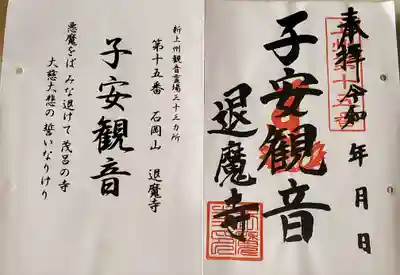 新上州観音霊場三十三カ所
第十五番 石岡山 退魔寺
子安観音
悪魔をば みな退けて 茂呂の寺
大慈大悲の 誓いなりけり
奉拝 令和 年 月 日
子安観音
退魔寺